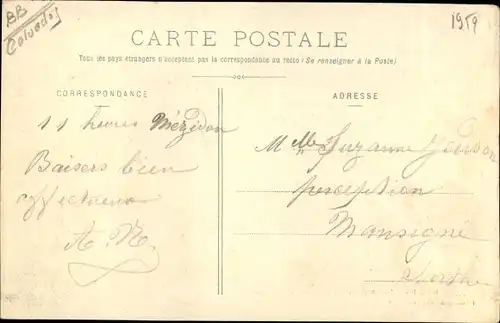 BB
Calvados
1959
CARTE POSTALE
Tous les pays étrangers n'acceptent pas la correspondance au recto (Se renseigner à la Poste)
CORRESPONDANCE
11 heures Mézidon
Baisers bien
affectueux
ADRESSE
Mlle Suzanne
perception
Mansigné
Sarthe